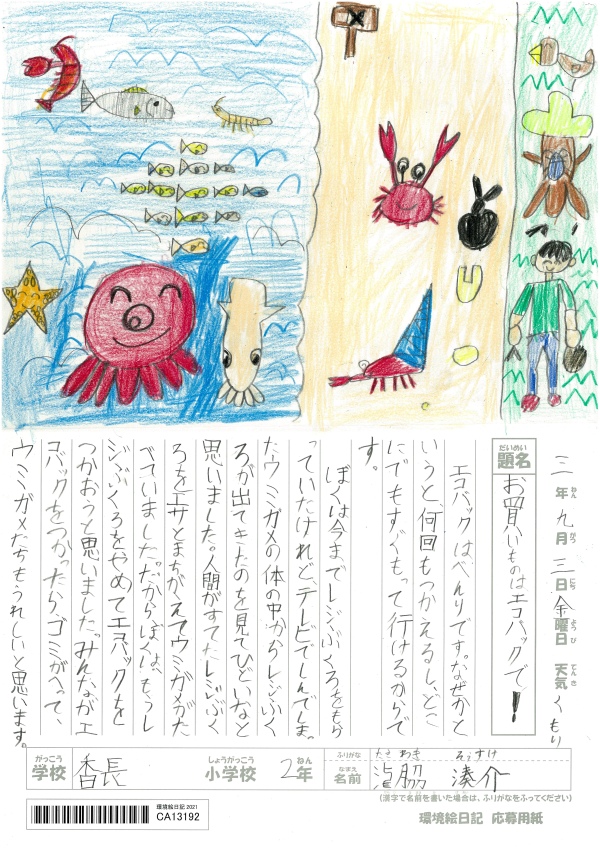 三年九月三日金曜日 天気 くもり
ねん がつ にち ようび てんき
だいめい
題名
お買いものはエコバックで!
エコバックはべんりです。なぜかと
いうと、何回もつかえるし、どこ
にでもすぐもって行けるからで
す。
ぼくは今までレジぶくろをもら
っていたけれど、テレビでしんでしま
たウミガメの体の中からレジぶく
ろが出てきたのを見てひどいなと
思いました。人間がすてたレジぶく
ろをエサとまちがえてウミガメがた
べていました。だからぼくは、もうレ
ジぶくろをやめてエコバックを
つかおうと思いました。みんながエ
コバックをつかったら、ゴミがへって、
ウミガメたちもうれしいと思います。
がっこう しょうがっこう ねん
学校 香長 小学校 2年
ふりがな たきわき そうすけ
なまえ
名前 滝脇 湊介
(漢字で名前を書いた場合は、ふりがなをふってください)
環境絵日記 2021
CA13192
環境絵日記 応募用紙